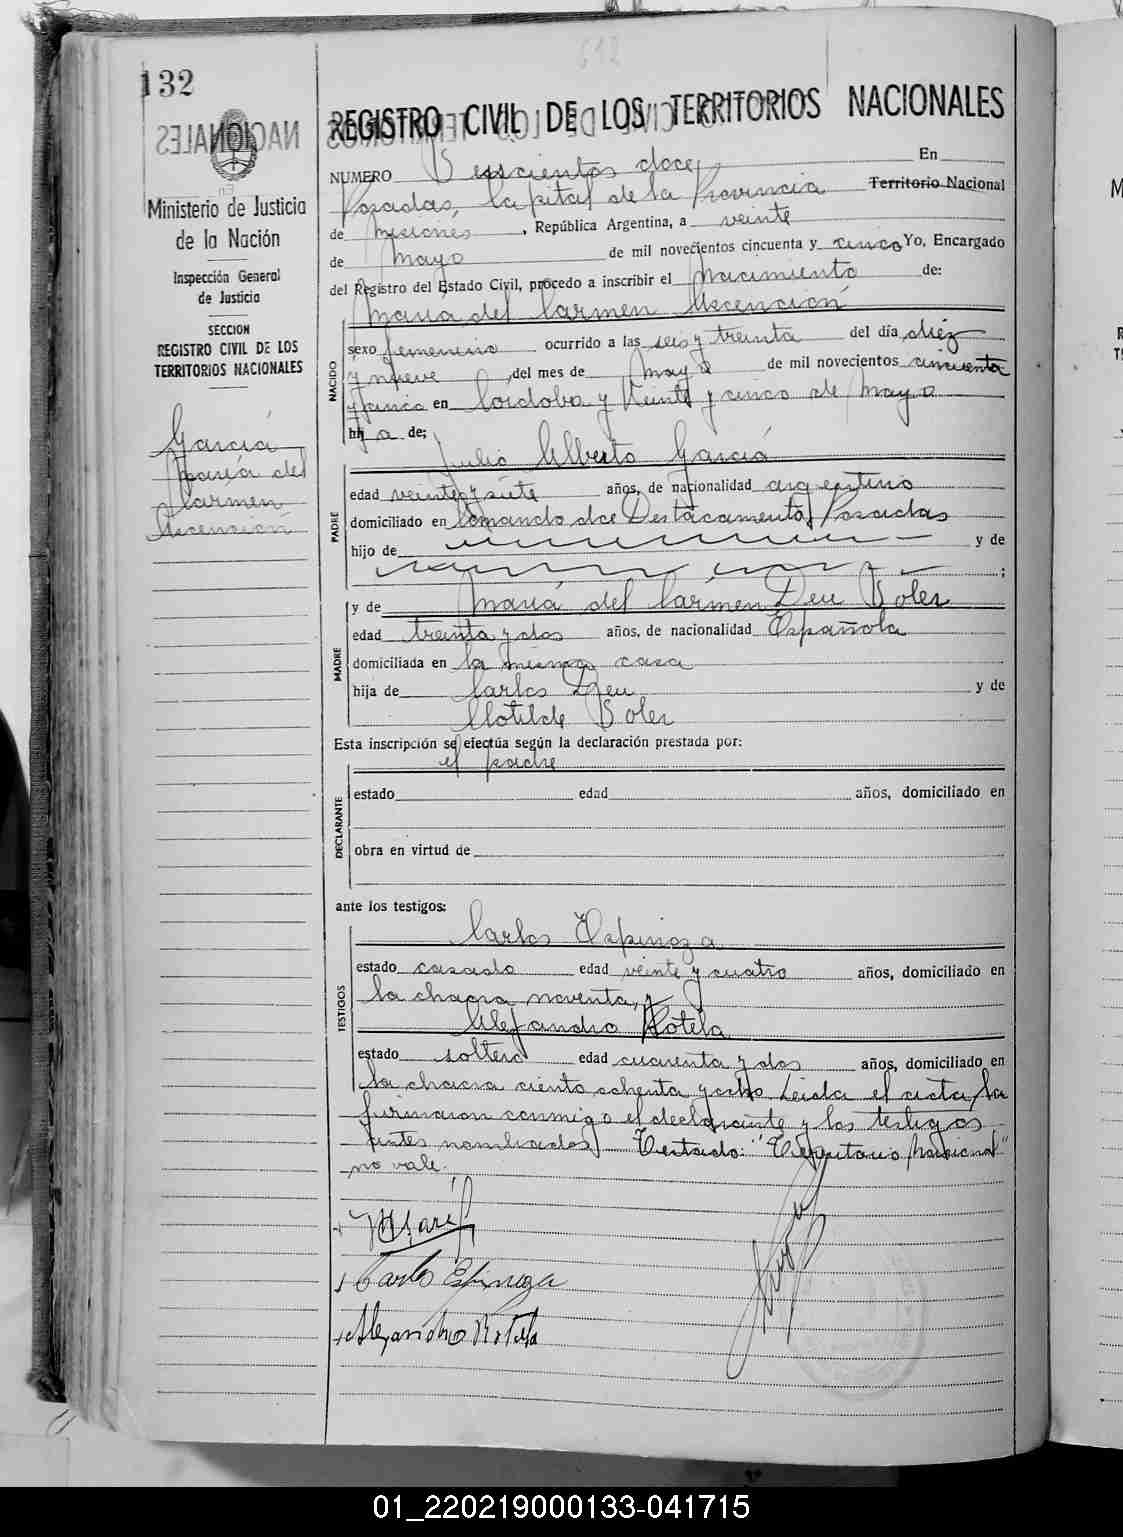 612
132
REGISTRO CIVIL DE LOS TERRITORIOS NACIONALES
Ministerio de Justicia
de la Nación
Inspección General
de Justicia
SECCION
REGISTRO CIVIL DE LOS
TERRITORIOS NACIONALES
García
María del
Carmen
Ascención
NUMERO Seiscientos doce, En
Posadas, Capital de la Provincia Territorio Nacional
de Misiones, República Argentina, a veinte
de Mayo de mil novecientos cincuenta y cinco Yo, Encargado
del Registro del Estado Civil, procedo a inscribir el nacimiento de:
María del Carmen Ascención
NACIDO
sexo femenino ocurrido a las seis y treinta del día diez
y nueve, del mes de mayo de mil novecientos cincuenta
y cinco en Córdoba y Veinte y cinco de Mayo
hija de;
Julio Alberto García
PADRE
edad veinte y siete años, de nacionalidad argentino
domiciliado en Comando de Destacamento Posadas
hijo de y de
;
y de María del Carmen Deu Soler
MADRE
edad treinta y dos años, de nacionalidad Española
domiciliada en la misma casa
hija de Carlos Deu y de
Clotilde Soler
Esta inscripción se efectúa según la declaración prestada por:
el padre
DECLARANTE
estado edad años, domiciliado en
obra en virtud de
ante los testigos:
Carlos Espinoza
TESTIGOS
estado casado edad veinte y cuatro años, domiciliado en
la chacra noventa, y
Alejandro Rotela
estado soltero edad cuarenta y dos años, domiciliado en
la chacra ciento ochenta y ocho Leida el acta, la
firmaron conmigo el declarante y los testigos
antes nombrados. Testado: "Territorio Nacional"
no vale.
Carlos Espinoza
Alejandro Rotela
01_220219000133-041715